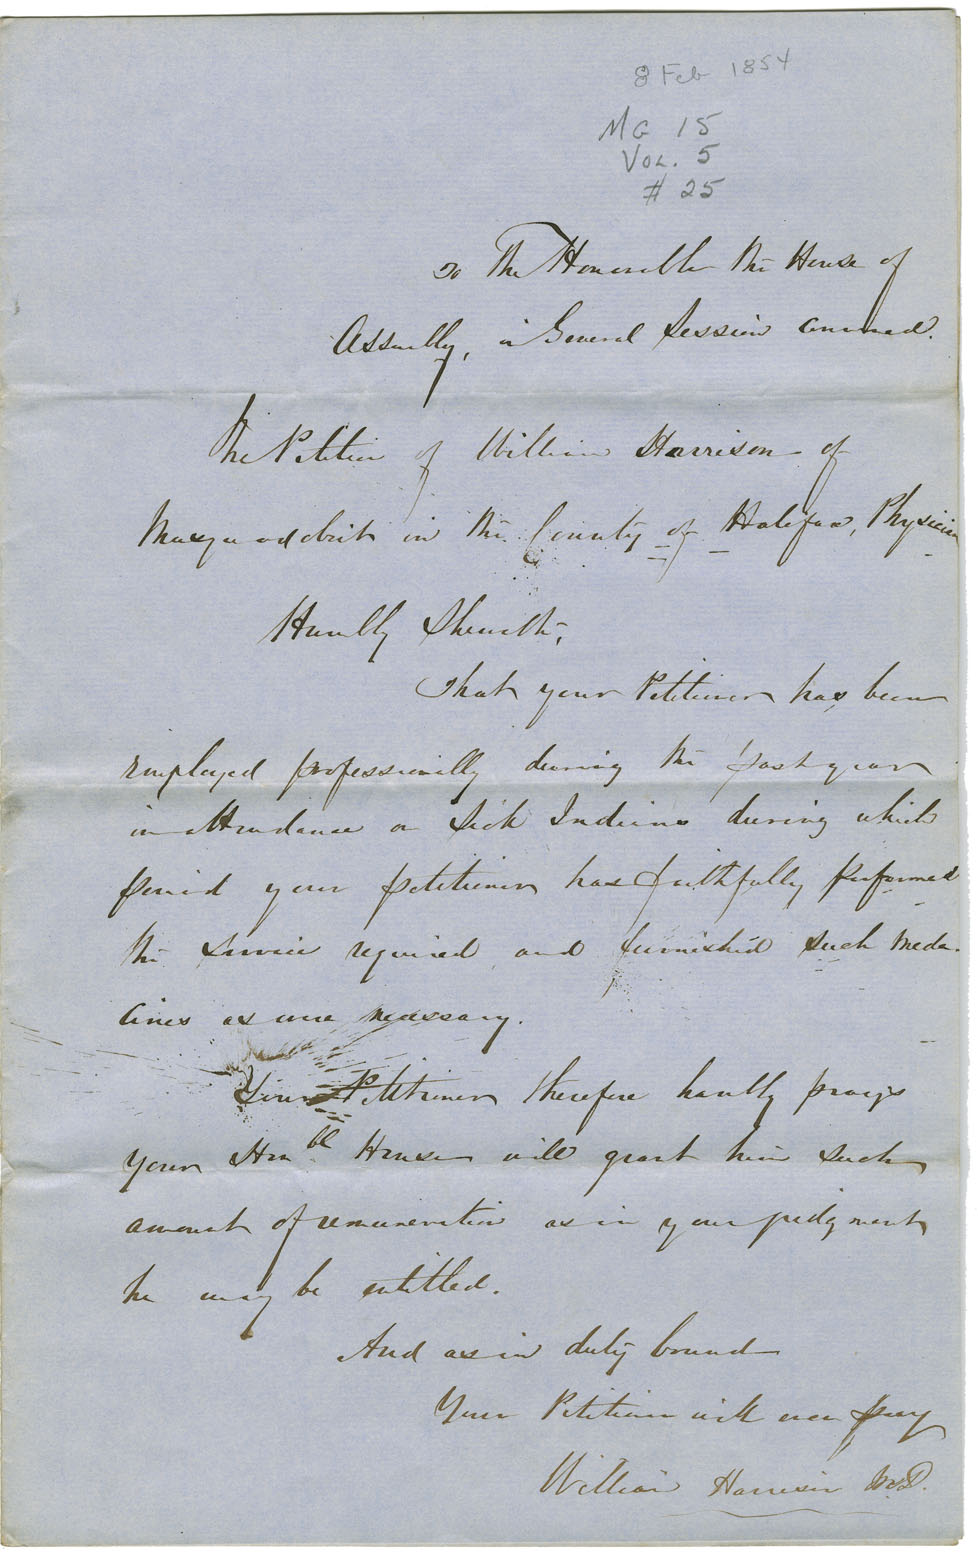 8 Feb 1854
MG 15
Vol. 5
# 25
To The Honorable the House of
Assembly, in General Session convened.
The Petition of William Harrison of
Musquodoboit in the County of Halifax, Physician
Humbly Sheweth,
That your Petitioner has been
employed professionally during the past year
in attendance on Sick Indians during which
period your petitioner has faithfully performed
the service required and furnished such Medi-
cines as were necessary.
Your Petitioner therefore humbly prays
your Honble House will grant him such
amount of remuneration as in your judgment
he may be entitled.
And as in duty bound
Your Petitioner will ever pray
William Harrison M.D.